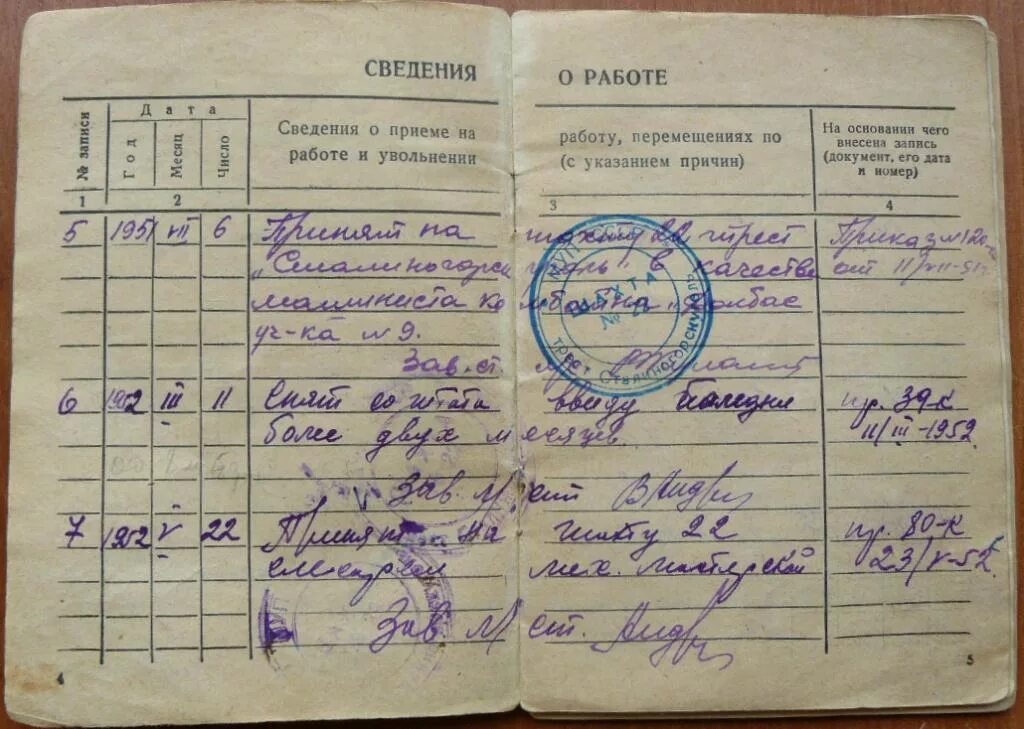 СВЕДЕНИЯ О РАБОТЕ
№ записи
Дата
Год
Месяц
Число
Сведения о приеме на работу, перемещениях по
работе и увольнении (с указанием причин)
На основании чего
внесена запись
(документ, его дата
и номер)
1 2 3 4
5 1951 VII 6 Принят на шахту 22 трест Приказ №
„Сталиногорск уголь" в качестве от 11/VII-51г.
машиниста комбайна „Донбас
уч-ка №9.
Зав. ст
МУП
ШАХТА
№ 22
трест Сталиногорскуголь
6 1952 III 11 Снят со штата ввиду болезни пр. 39-к
более двух месяцев. 11/III-1952.
Зав. М. ст
7 1952 V 22 Принят на шахту 22 пр. 80-к
слесарем мех. мастерской 23/V-52
Зав М. ст.
4 5